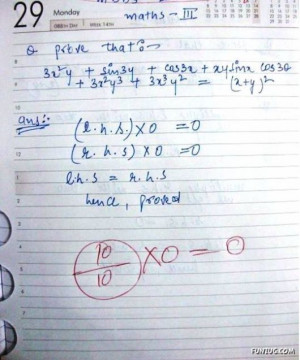 29 Monday
maths - III
Q prove that :-
3x²y + sin3y + cos3x + xysinx cos30
+ 3x²y³ + 3x³y² = (x+y)²
ans:-
(l.h.s.) X 0 = 0
(r.h.s) X 0 = 0
l.h.s = r.h.s
hence, proved
10/10 X 0 = 0
FUNTUG.COM